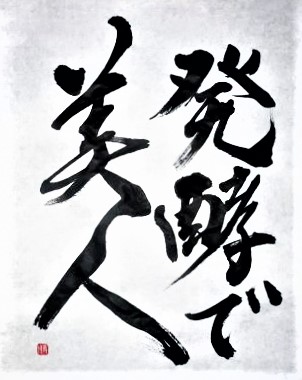 発酵で
美人